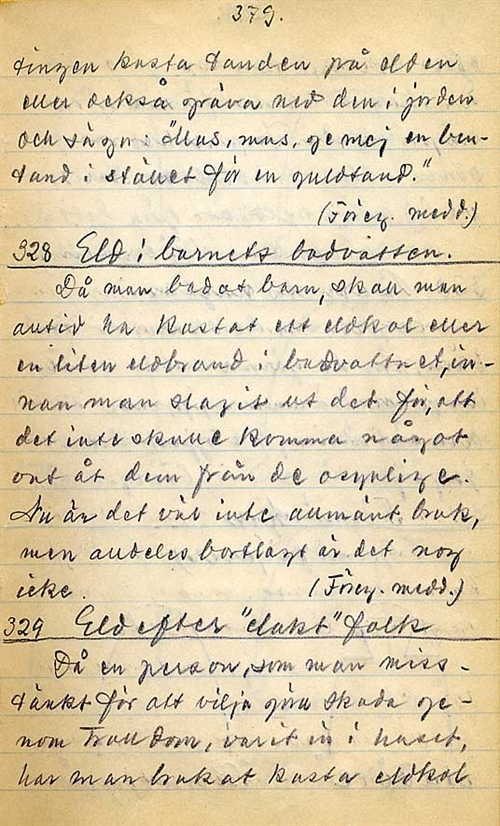 379.
tingen kasta tanden på elden
eller också gräva ned den i jorden
och säger: "Mus, mus, ge mej en ben-
tand i stället för en guldtand."
(Föreg. medd.)
328 Eld i barnets badvatten.
Då man badat barn, skall man
altid ha kastat ett eldkol eller
en liten eldbrand i badvattnet, in-
nan man slagit ut det för, att
det inte skulle komma något
ont åt dem från de osynlige.
Nu är det väl inte allmänt bruk,
men alldeles bortlagt är det nog
icke. (Föreg. medd.)
329 Eld efter "elakt" folk
Då en person, som man miss-
tänkt för att vilja göra skada ge-
nom Trolldom, varit in i huset,
har man brukat kasta eldkol